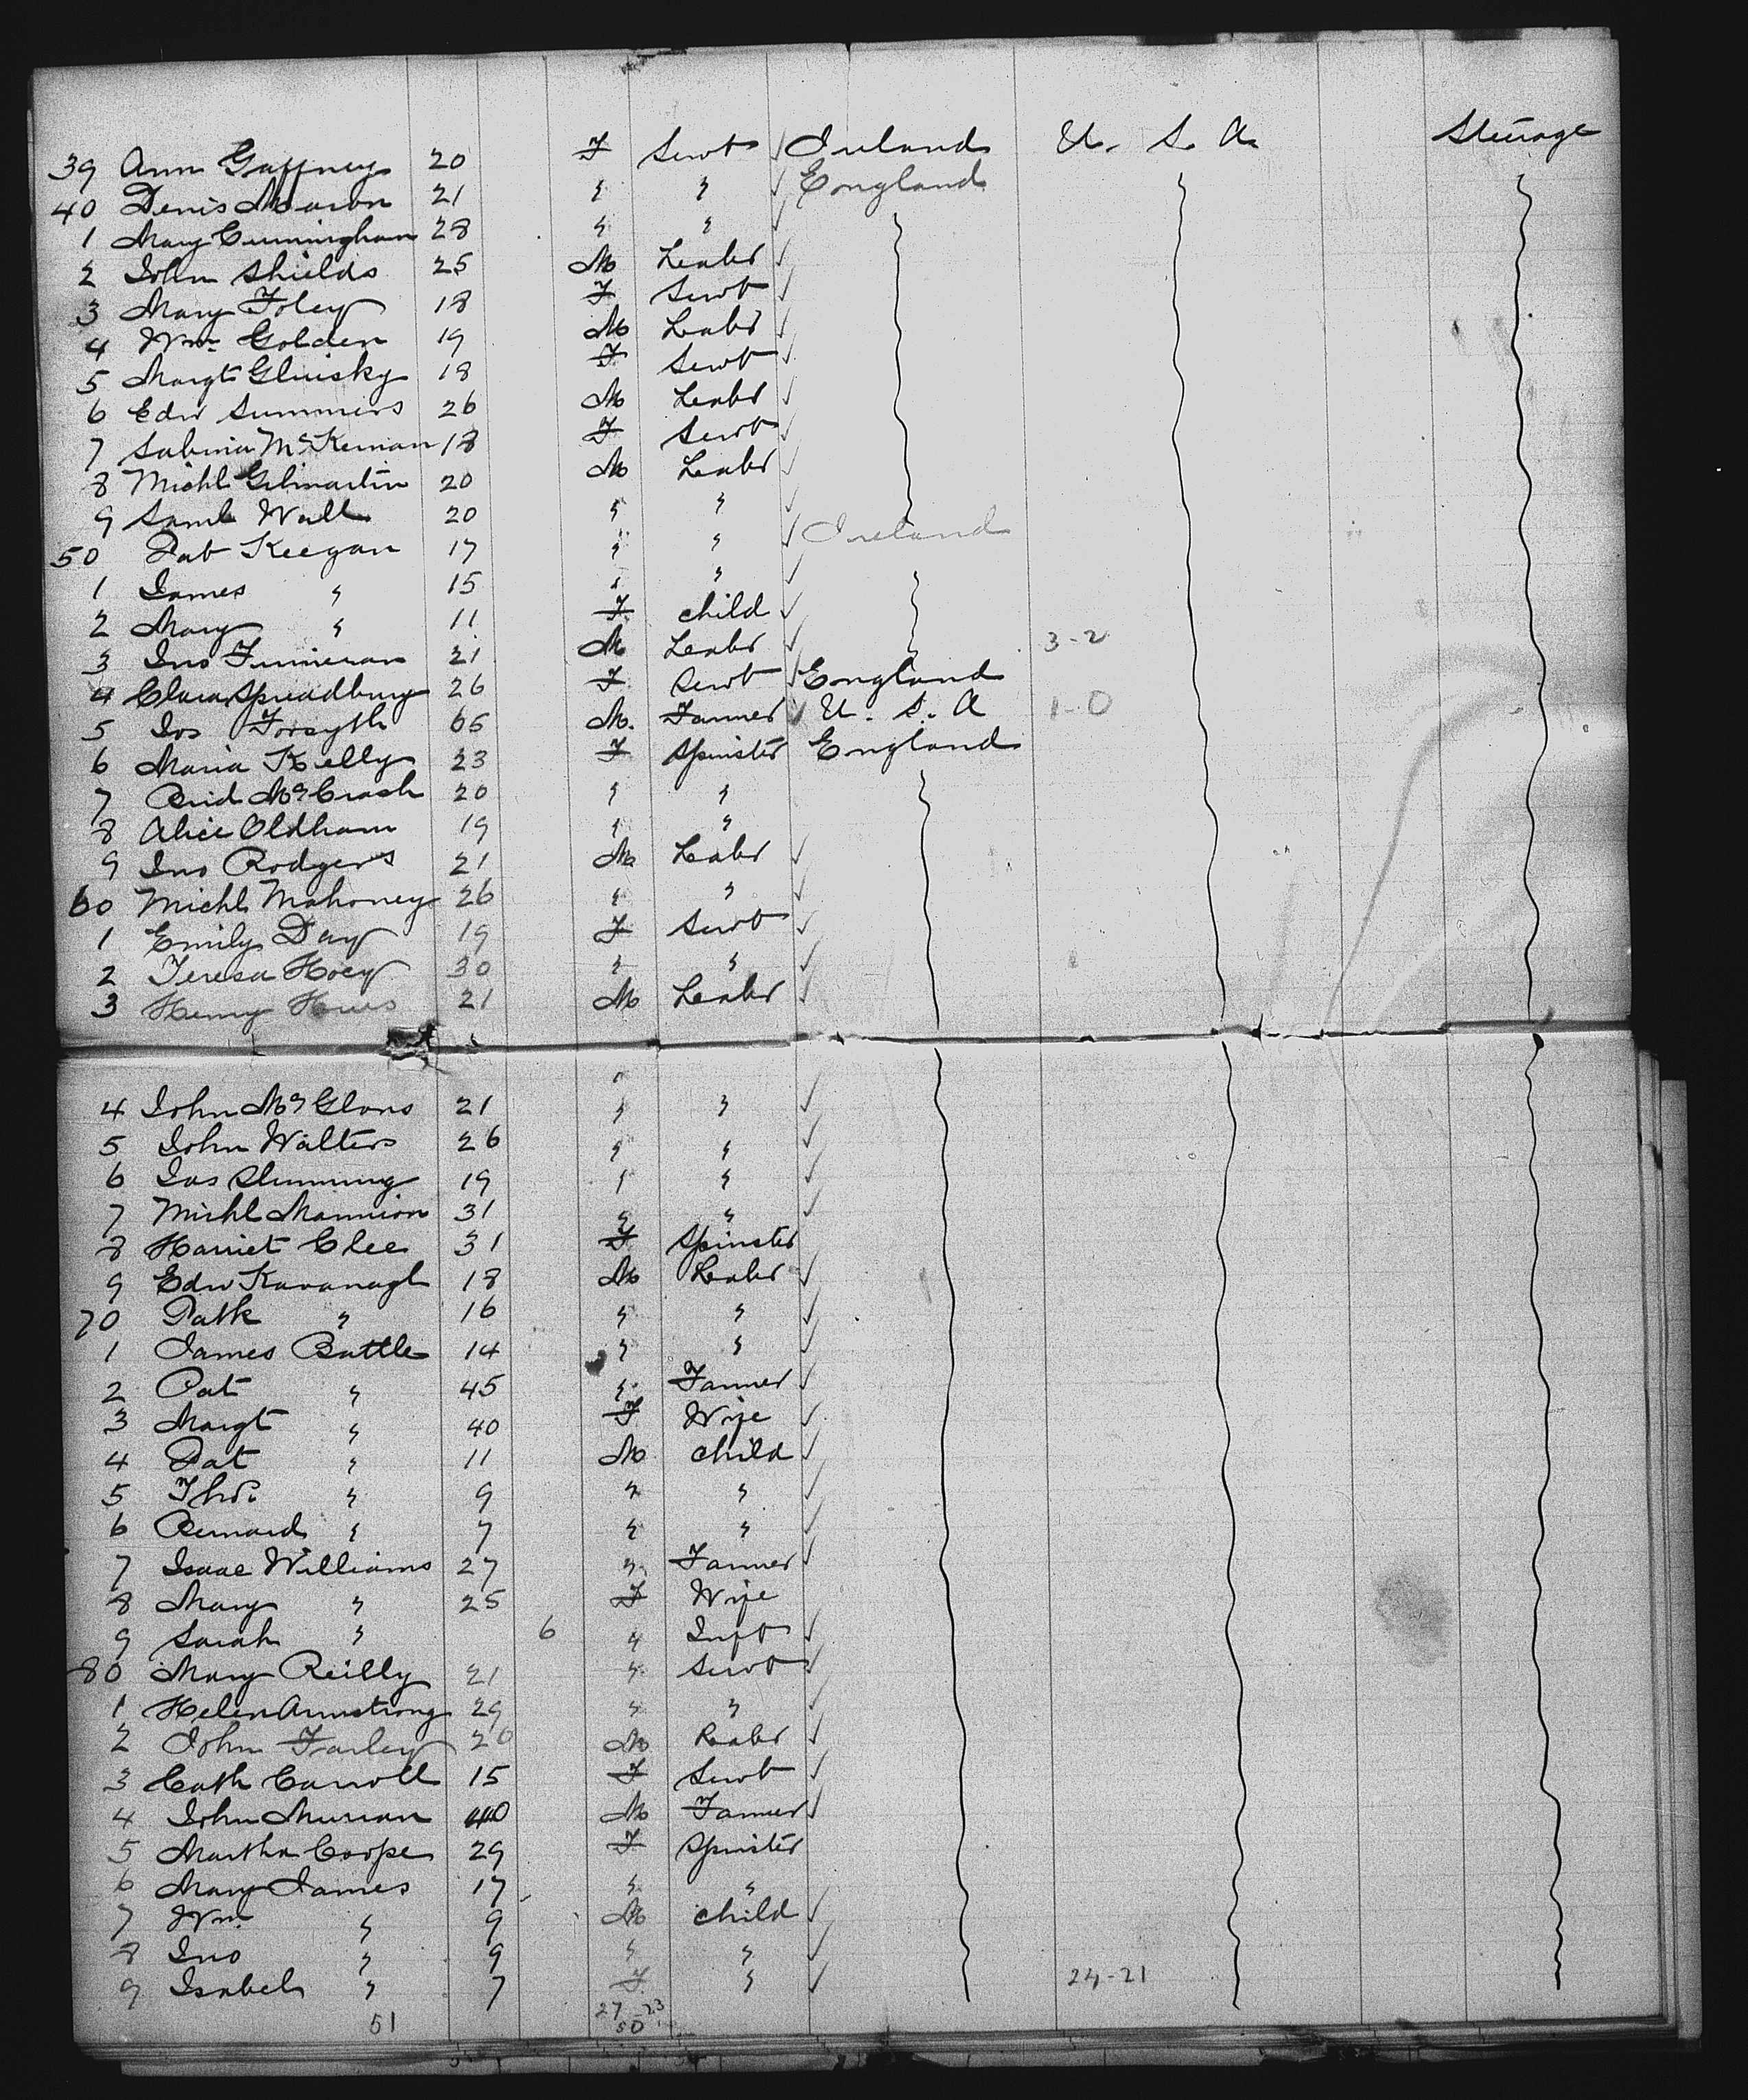 39 Ann Gaffney 20 F Servt ✓ Ireland U. S. A. Steerage
40 Denis Maron 21 " " ✓ England
1 Mary Cunningham 28 " " ✓
2 John Shields 25 M Labr ✓
3 Mary Foley 18 F Servt ✓
4 Wm Golden 19 M Labr ✓
5 Margt Glinsky 18 F Servt ✓
6 Edw Summers 26 M Labr ✓
7 Sabina McKernan 18 F Servt ✓
8 Michl Gilmartin 20 M Labr ✓
9 Saml Wall 20 " " ✓
50 Pat Keegan 17 " " ✓ Ireland
1 James " 15 " " ✓
2 Mary " 11 F child ✓
3 Jno Finneran 21 M Labr ✓ 3-2
4 Clara Spreadbury 26 F Servt ✓ England
5 Jos Forsyth 65 M. Farmer ✓ U. S. A 1-0
6 Maria Kelly 23 F Spinster England
7 Brid 20 " "
8 Alice Oldham 19 " "
9 Jno Rodgers 21 M Labr ✓
60 Michl Mahoney 26 " " ✓
1 Emily Day 19 F Servt ✓
2 Teresa Hoey 30 " " ✓
3 Henry 21 M Labr ✓
4 John 21 " " ✓
5 John Walters 26 " " ✓
6 Jas 19 " " ✓
7 Michl Mannion 31 " " ✓
8 Harriet Clee 31 F Spinster
9 Edw Kavanagh 18 M Labr ✓
70 Patk " 16 " " ✓
1 James Battle 14 " " ✓
2 Pat " 45 " Farmer ✓
3 Margt " 40 F Wife ✓
4 Pat " 11 M child ✓
5 Thos. " 9 " " ✓
6 Bernard " 7 " " ✓
7 Isaac Williams 27 " Farmer ✓
8 Mary " 25 F Wife
9 Sarah " 6 " Inft ✓
80 Mary Reilly 21 " Servt ✓
1 Helen Armstrong 29 " " ✓
2 John Farley 20 M Labr ✓
3 Cath Carroll 15 F Servt ✓
4 John 40 M Farmer ✓
5 Martha Cooper 29 F Spinster
6 Mary James 17 " "
7 Wm. " 9 M child ✓
8 Jno " 9 " " ✓
9 Isabel " 7 F " ✓ 24-21
51 27-23
50